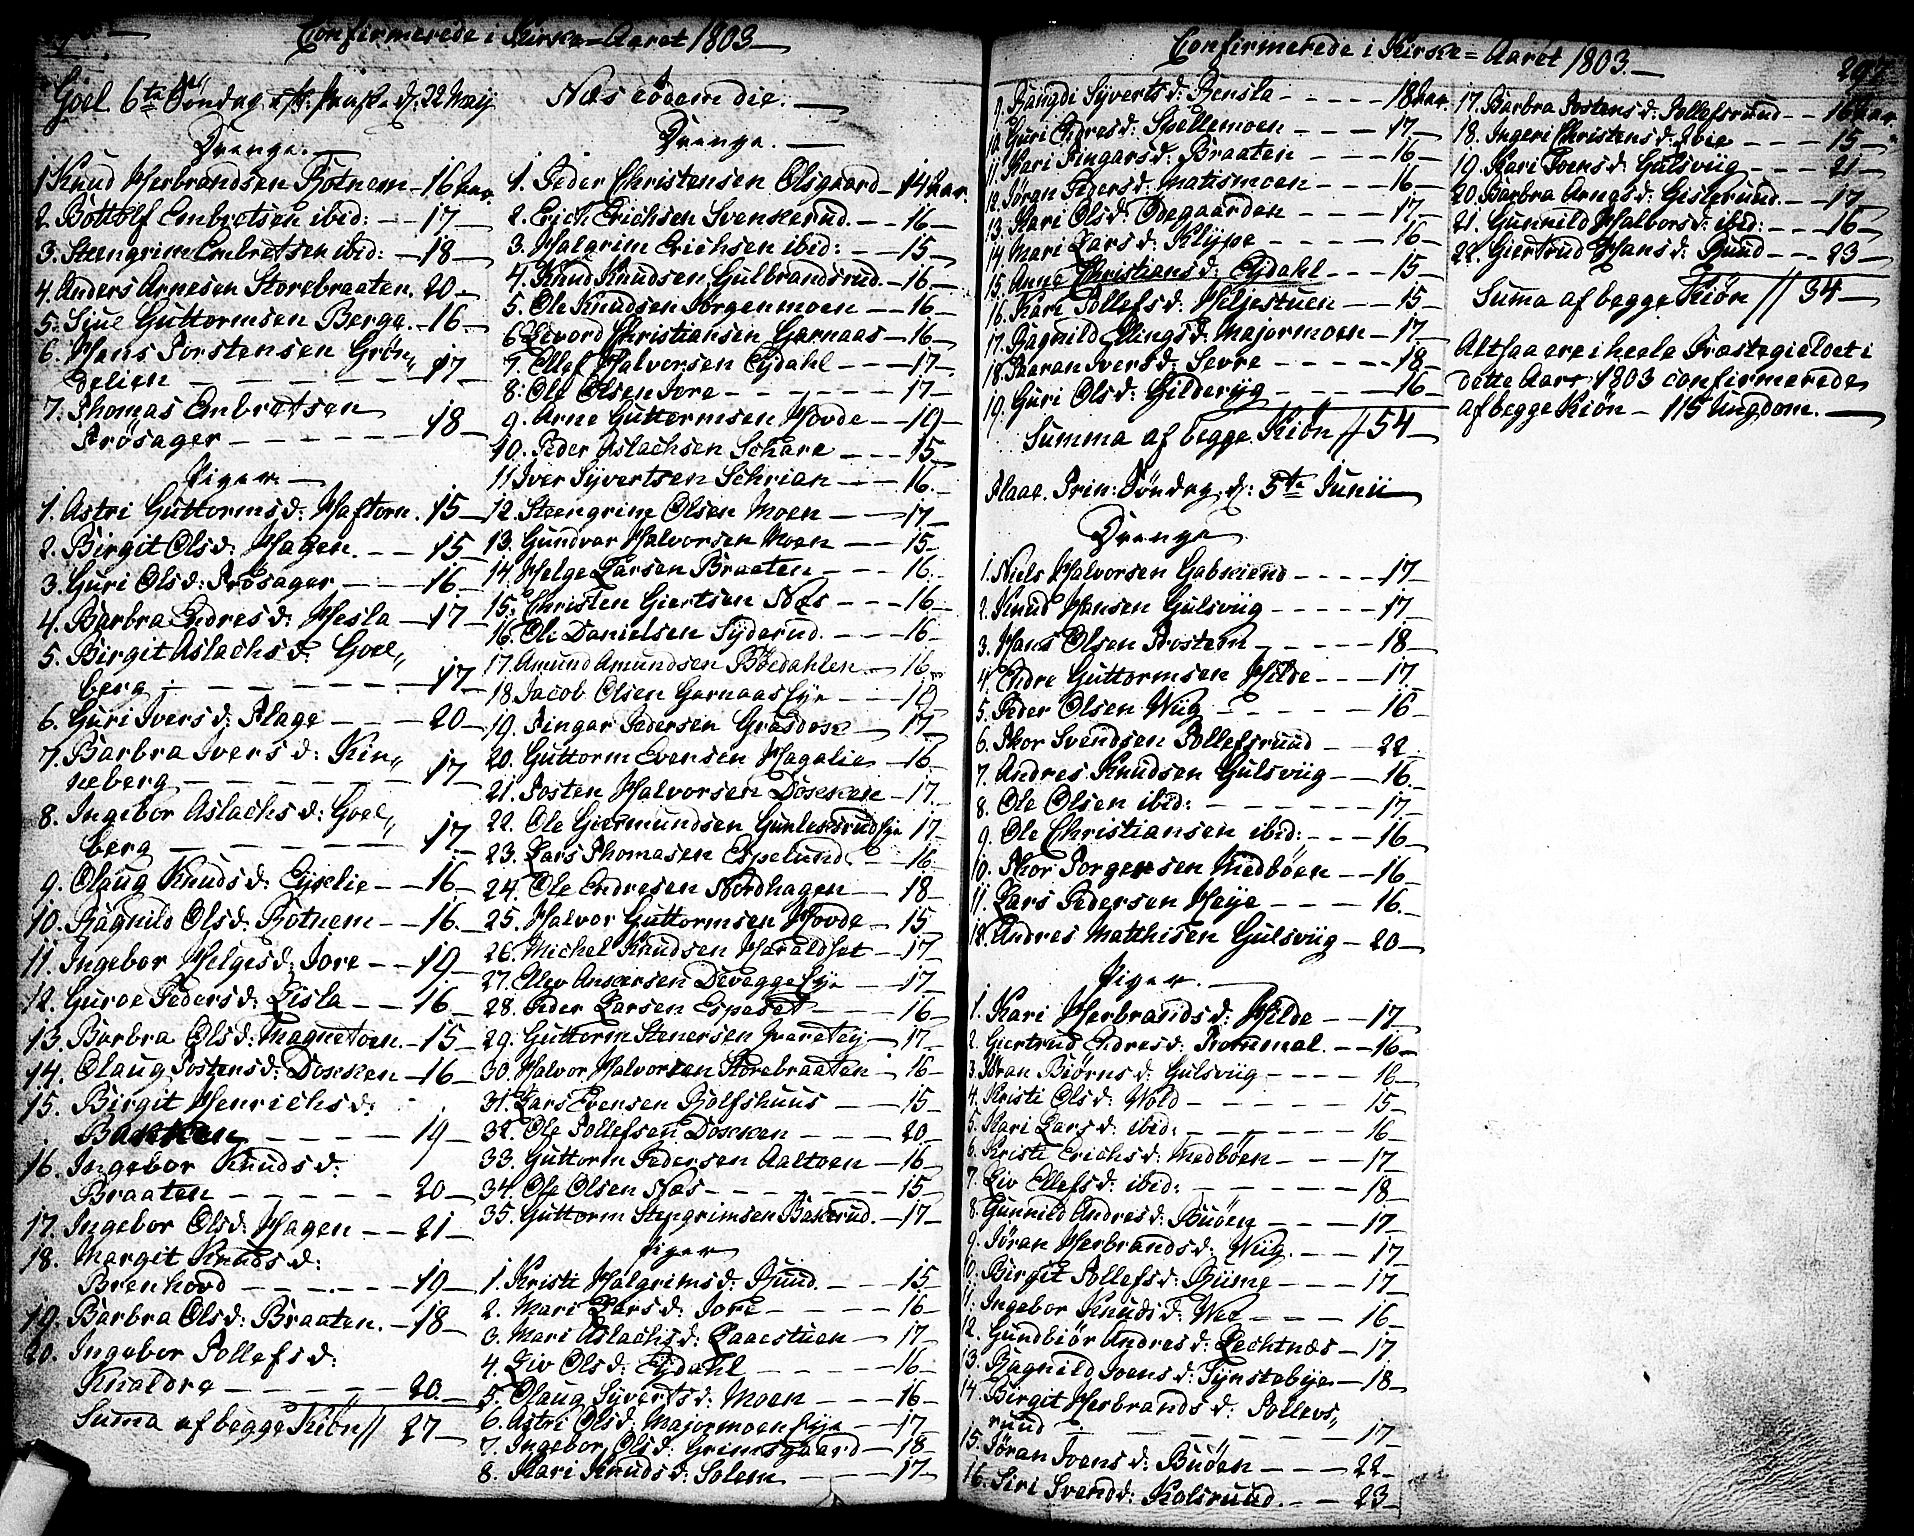 Confirmerede i Kirke-Aaret 1803
Goel 6te Søndag eft. Paaske d: 22 Maij
Drenge.
1 Knud Herbrandsen Rotnem - 16 aar
2. Bottolf Embretsen ibid: - 17
3. Steengrim Embretsen ibid: - 18
4. Anders Arnesen Storebraaten. 20
5. Siul Guttormsen Berge. - 16
6. Hans Torstensen Grøn„
delien - 17
7. Thomas Embretsen
Trøsager - 18
Piger.
1. Astri Guttormsd: Haftorn. 15
2. Birgit Olsd: Hagen. - 15
3. Guri Olsd: Trøsager - 16
4. Barbra Endresd: Hesla - 17
5. Birgit Aslachsd: Goel„
berg - 17
6. Guri Iversd: Plage - 20
7. Barbra Ivers d: Kin„
neberg - 17
8. Ingebor Aslachsd: Goel„
berg - 17
9. Olaug Knudsd: Eyklie - 16
10. Ragnild Olsd: Rotnem - 16
11. Ingebor Helgesd: Jore - 19
12. Guroe Pedersd: Lisla - 16
13. Barbra Olsd: Magnetoen. - 15
14. Olaug Tostensd: Dokken - 16
15. Birgit Henrichsd:
Bakken - 19
16. Ingebor Knudsd:
Braaten - 20
17. Ingebor Olsd: Hagen - 21
18. Margit Knudsd:
Brenhovd - 19
19. Barbra Olsd: Braaten. - 18
20. Ingebor Tollefsd:
Knaldre - 20
Suma af begge Kiøn // 27
Næs eodem die.
Drenge.
1. Peder Christensen Olsgaard - 14 aar
2. Erich Erichsen Svenkerud. - 16
3. Halgrim Erichsen ibid: - 15
4. Knud Knudsen Gulbrandsrud. - 16
5. Ole Knudsen Jorgenmoen - 16
6 Edvord Christiansen Garnaas - 16
7. Ellef Halvorsen Eydahl - 17
8: Ole Olsen Jore - 17
9. Arne Guttormsen Hovde - 19
10. Peder Aslachsen Schare - 15
11 Iver Syvertsen Schrian - 16
12. Steengrim Olsen Moen - 17
13. Gundvar Halvorsen Moen - 15
14. Helge Larsen Braaten - 16
15. Christen Giertsen Næs - 16
16. Ole Danielsen Syderud. - 16
17. Amund Amundsen Bøedahlen - 16
18. Jacob Olsen Garnaas Eye - 19
19. Ringar Pedersen Grasdok - 17
20. Guttorm Evensen Hagalie - 16
21. Tosten Halvorsen Dokken - 17
22. Ole Giermundsen Gunleksrud Eye 17
23. Lars Thomasen Espelund - 16
24. Ole Endresen Nordhagen - 18
25. Halvor Guttormsen Hovde - 15
26. Michel Knudsen Haraldset - 17
27. Ellev Ankersen Deveggeeye - 17
28. Peder Larsen Espeset - 16
29. Guttorm Stenersen - 17
30. Halvor Halvorsen Storebraaten - 16
31. Lars Evensen Rolfshuus - 15
32. Ole Tollefsen Dokken - 20
33. Guttorm Pedersen Aaltoen - 16
34. Ole Olsen Næs - 15
35. Guttorm Stengrimsen Bakerud. - 17
Piger
1. Kristi Halgrimsd: Ruud. - 15
2. Mari Larsd: Jore - 16
3. Mari Aslachsd: Laaestuen - 17
4. Liv Olsd: Eydahl - 16
5. Olaug Syvertsd: Moen - 16
6. Astri Olsd: Majormoen Eye - 17
7. Ingebor Olsd: Grimsgaard - 18
8. Kari Knudsd: Solem - 17
Confirmerede i Kirke-Aaret 1803.
9. Rangdi Syvertsd: Rensla - 18 aar
10. Guri Endresd: Spellemoen - 17
11. Kari Ringarsd: Braaten - 16
12. Jøran Pedersd: Matismoen - 16
13. Kari Olsd: Ødegaarden - 17
14. Mari Larsd: Klype - 16
15. Anne Christiansd: Eydahl - 15
16. Kari Tollefsd: Heljestuen - 15
17. Ragnild Ellingsd: Majormoen - 17
18. Paaran Iversd: Sevre - 18
19. Guri Olsd: Gilderyg - 16
Summa af begge Kiøn // 54
Flaae. Trin: Søndag, d: 5te Junii
Drenge
1. Niels Halvorsen Gabskiend - 17
2. Knud Hansen Gulsviig - 17
3. Hans Olsen Rostem - 18
4. Endre Guttormsen Hilde - 17
5. Peder Olsen Wiig - 16
6. Thor Svendsen Tollefsruud - 22
7. Andres Knudsen Gulsviig - 16
8. Ole Olsen ibid: - 17
9. Ole Christiansen ibid: - 16
10. Thor Torgersen Medbøen - 16
11. Lars Pedersen Heye - 16
12. Andres Matthisen Gulsviig - 20
Piger.
1. Kari Herbrandsd: Hilde - 17
2. Giertrud Endresd: Trommal. - 16
3. Jøran Biørnsd: Gulsviig - 16
4. Kristi Olsd: Wold - 15
5. Kari Larsd: ibid: - 16
6. Kristi Erichsd: Medbøen - 17
7. Liv Ellefsd: ibid: - 18
8. Gunnild Andresd: Buøen - 17
9. Jøran Herbrandsd: Wiig. - 17
10. Birgit Tollefsd: Riime - 17
11. Ingebor Knudsd: Wee - 16
12. Gundbiør Andresd: Lechtnæs - 17
13. Ragnild Ivensd: Synstebye - 18
14. Birgit Herbrandsd: Tollevs„
ruud - 17
15. Jøran Ivensd: Buøen - 22
16. Siri Svendd: Kolsruud. - 23
17. Barbra Tostensd: Tollefsruud - 16 aar
18. Ingeri Christensd: Hvie - 15
19. Kari Ivensd: Gulsviig - 21
20. Barbra Arnesd: Gislerund. - 17
21. Gunnild Halvorsd: ibid: - 16
22. Giertrud Hansd: Ruud - 23
Suma af begge Kiøn // 34
Altsaa ere i heele Præstegieldet i
dette Aar 1803 confirmerede
af begge Kiøn - 115 Ungdom.